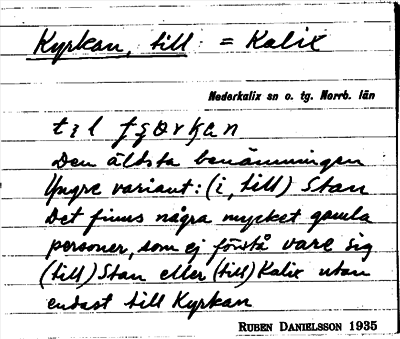 Kyrkan, till = Kalix
Nederkalix sn o. tg. Norrb. län
Den äldsta benämningen
Yngre variant: (i, till) Stan
Det finns några mycket gamla
personer, som ej förstå vare sig
(till) Stan eller (till) Kalix utan
endast till Kyrkan
RUBEN DANIELSSON 1935